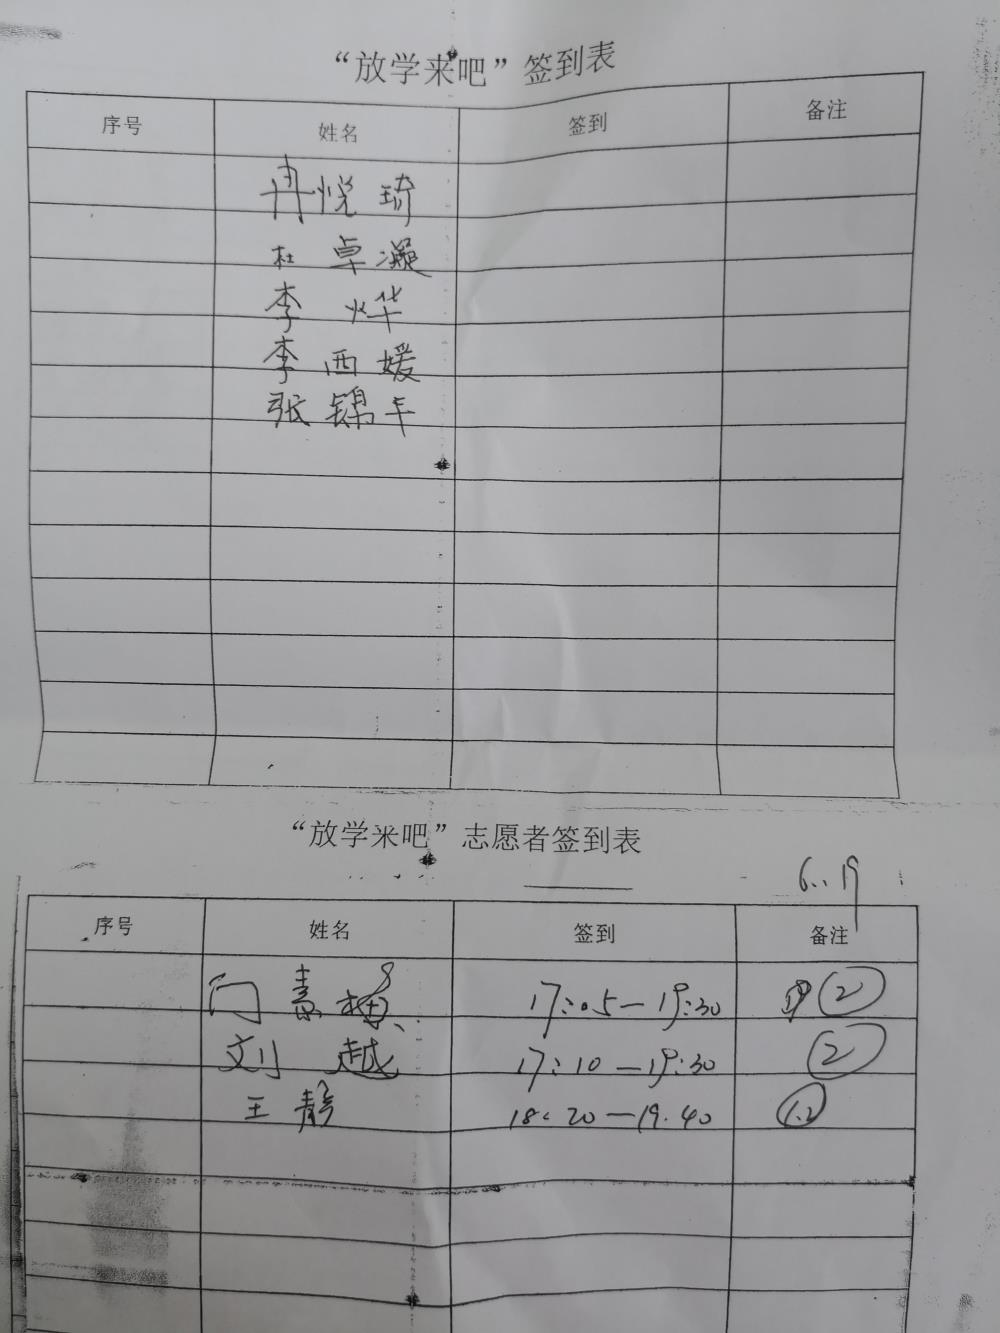 “放学来吧”签到表
序号 姓名 签到 备注
冉悦琦
杜卓凝
李烨
李西媛
张锦
“放学来吧”志愿者签到表
6..19
序号 姓名 签到 备注
门 17:05—19:30 ②
刘越 17:10—19:30 ②
王静 18:20—19:40